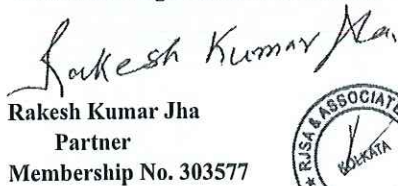 Rakesh Kumar Jha
Rakesh Kumar Jha
Partner
Membership No. 303577
RJSA & ASSOCIATE
KOLKATA